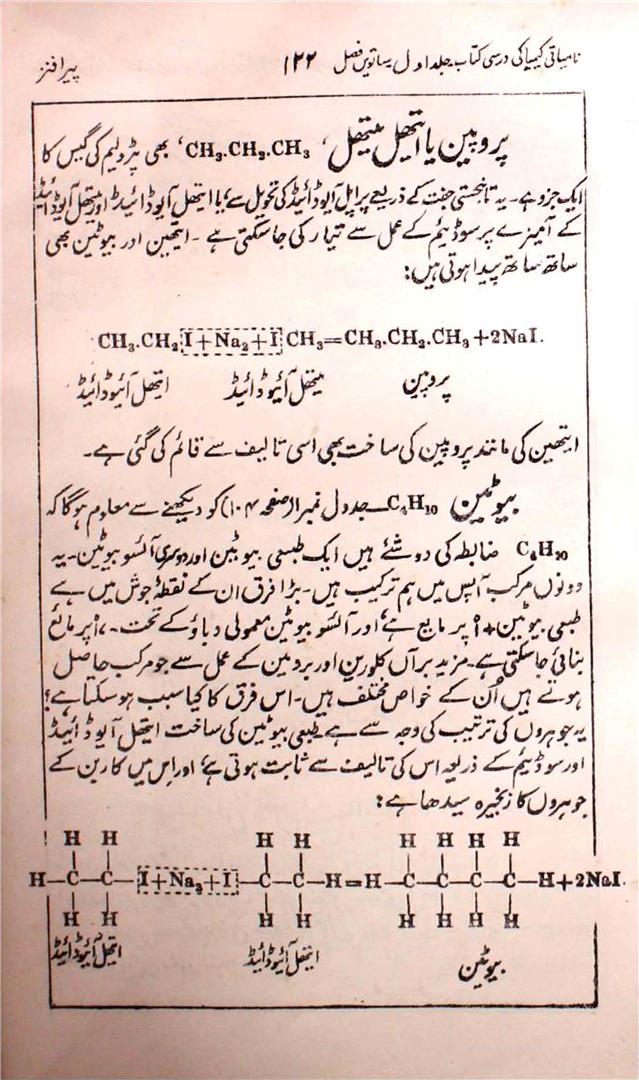 نامیاتی کیمیا کی درسی کتاب۔ جلد اول۔ ساتویں فصل ۱۲۲ پیرافنز
پروپین یا اتھیل میتھیل، CH₃.CH₂.CH₃، بھی پٹرولیم کی گیس کا
ایک جزو ہے۔ یہ تا نجستی جفت کے ذریعے پراپل آیوڈائیڈ کی تحویل سے، یا ایتھل آیوڈائیڈ اور میتھل آیوڈائیڈ
کے آمیزے پر سوڈیئم کے عمل سے تیار کی جا سکتی ہے۔ ایتھین اور بیوٹین بھی
ساتھ ساتھ پیدا ہوتی ہیں:
CH₃.CH₂I+Na₂+ICH₃=CH₃.CH₂.CH₃+2NaI.
ایتھل آئیوڈائیڈ میتھل آئیوڈائیڈ پروپین
ایتھین کی مانند پروپین کی ساخت بھی اسی تالیف سے قائم کی گئی ہے۔
بیوٹین C₄H₁₀—جدول نمبر ۱ (صفحہ ۱۰۴) کو دیکھنے سے معلوم ہوگا کہ
C₄H₁₀ ضابطہ کی دو شئے ہیں ایک طبعی بیوٹین اور دوسری آئسو بیوٹین۔ یہ
دونوں مرکب آپس میں ہم ترکیب ہیں۔ بڑا فرق ان کے نقطۂ جوش میں ہے
طبعی بیوٹین +۱° پر مایع ہے، اور آئسو بیوٹین معمولی دباؤ کے تحت پر مائع
بنائی جا سکتی ہے۔ مزید برآں کلورین اور برومین کے عمل سے جو مرکب حاصل
ہوتے ہیں اُن کے خواص مختلف ہیں۔ اس فرق کا کیا سبب ہو سکتا ہے؟
یہ جوہروں کی ترتیب کی وجہ سے ہے۔ طبعی بیوٹین کی ساخت ایتھل آیوڈائیڈ
اور سوڈیئم کے ذریعہ اس کی تالیف سے ثابت ہوتی ہے، اور اس میں کاربن کے
جوہروں کا زنجیرہ سیدھا ہے:
H H H H H H H H
H—C—C—I+Na₂+I—C—C—H=H—C—C—C—C—H+2NaI.
H H H H H H H H
ایتھل آئیوڈائیڈ ایتھل آئیوڈائیڈ بیوٹین